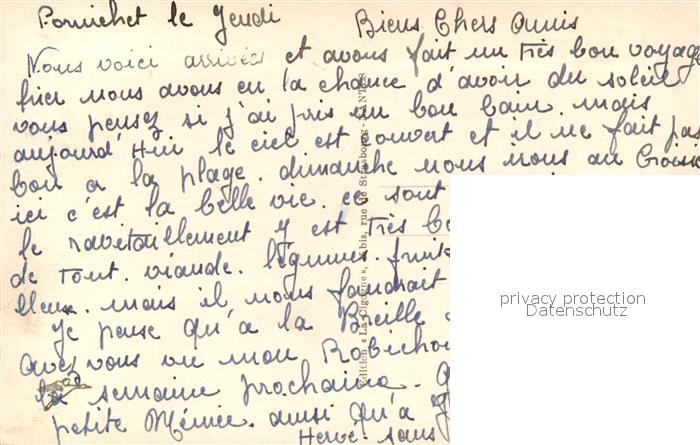 Pornichet le Jeudi Biens Chers Amis
Nous voici arrivés et avons fait un très bon voyage
hier nous avons eu la chance d'avoir du soleil
vous pensez si j'ai pris un bon bain. mais
aujourd'Hui le ciel est couvert et il ne fait pas
bon a la plage. dimanche nous irons au Croisic
ici c'est la belle vie. ce sont
le ravitaillement y est très
de tout. viande. légumes.
mais il nous faudrait
Je pense qu'a la
avez vous vu mon
la semaine prochaine.
petite Mémée. ainsi qu'a
Hervé. sans
Edition « La Cigogne », bis, rue de Strasbourg - NANTES
privacy protection
Datenschutz